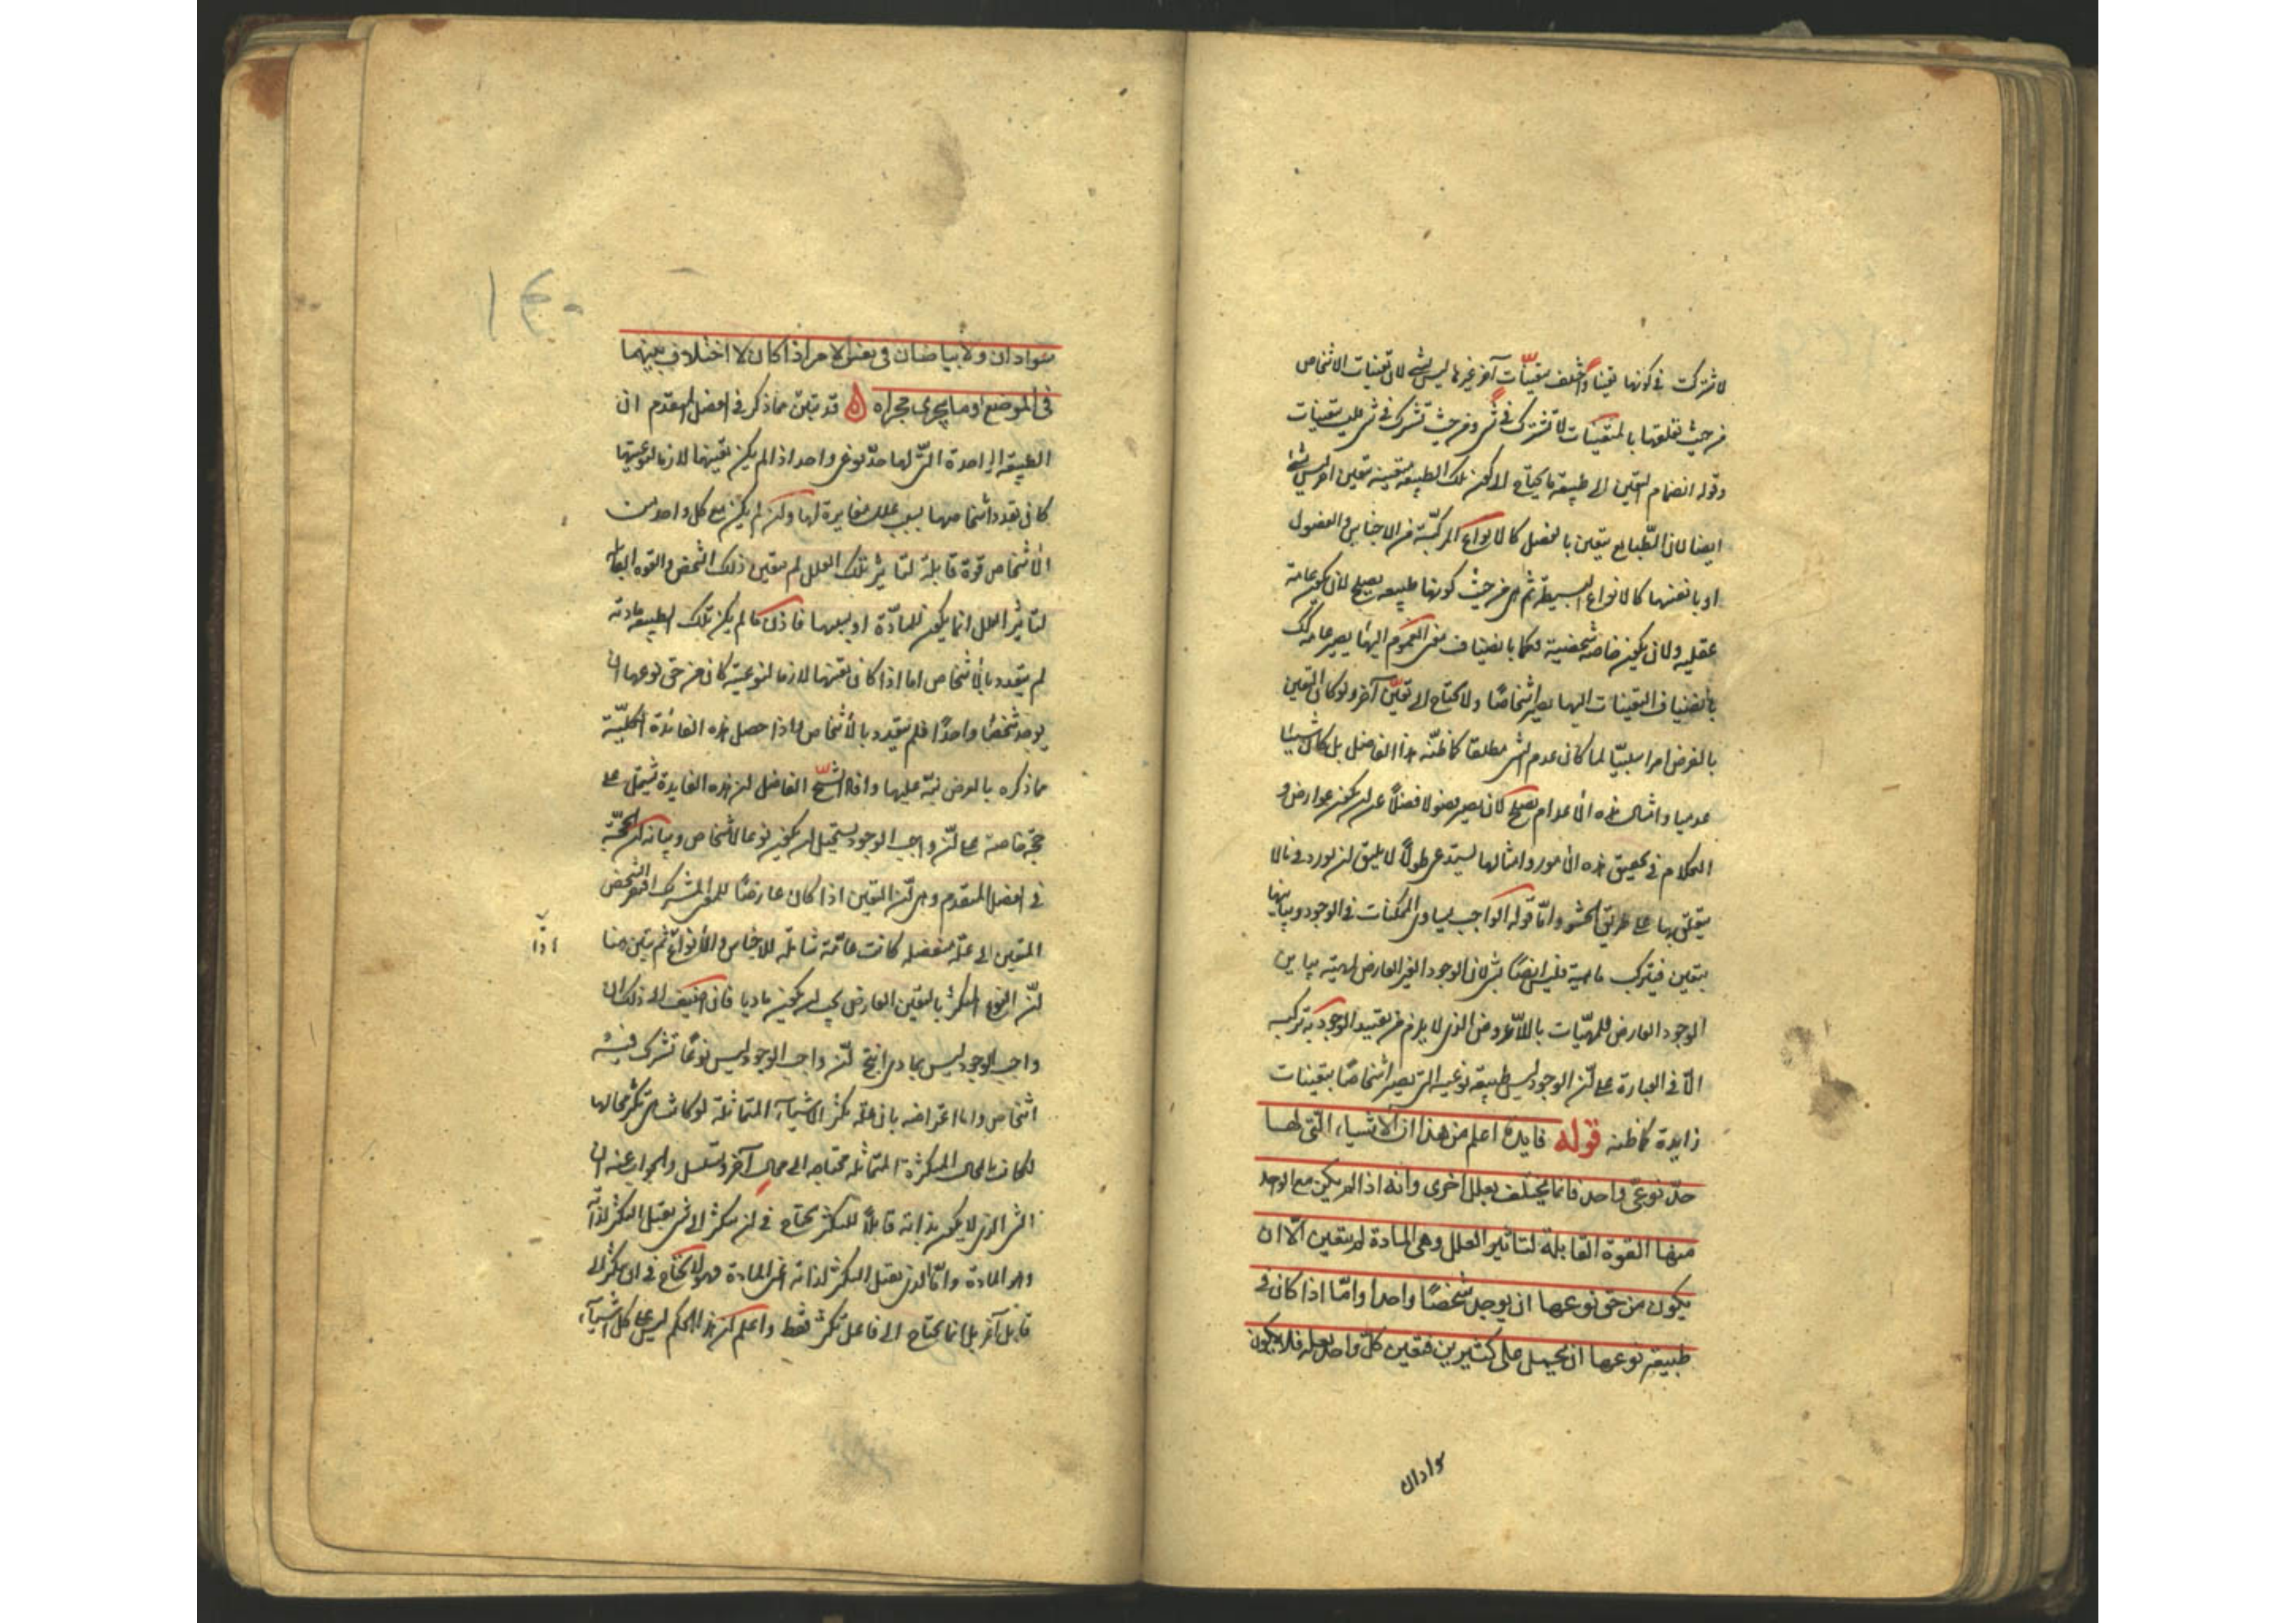 لاشتركت في كونها تعينا واختلف بتعينات آخر غيرها ليس بشئ لان تعينات الاشخاص
من حيث تعلقها بالمتعينات لا تشترك في شئ ومن حيث تشترك في شئ فليست بتعينات
وقوله انضمام التعين الى طبيعة ما يحتاج الى كون تلك الطبيعة متعينة بتعين آخر ليس بشئ
ايضا لان الطبايع تتعين بالفصل كالانواع المركبة من الاجناس والفصول
او بانفسها كالانواع البسيطة ثم هي من حيث كونها طبيعة يصلح لان يكون عامة
عقلية ولان يكون خاصة شخصية فكما بانضياف معنى العموم اليها يصير عامة كذلك
بانضياف التعينات اليها يصير اشخاصا ولا يحتاج الى تعين آخر ولو كان التعين
بالفرض امرا سلبيا لما كان عدم الشئ مطلقا كما ظنه هذا الفاضل بل كان شيئا
عدميا وامثال هذه الاعدام يصلح لان يصير فصولا فضلا عن ان يكون عوارض و
الكلام في تحقيق هذه الامور وامثالها يستدعى طولا لا يليق ان يورد فيما لا
يتعلق بها على طريق الحشو واما قوله الواجب يساوى الممكنات في الوجود ويباينها
بتعين فيتركب ماهيته فليس ايضا بشئ لان الوجود الغير العارض لمهية يباين
الوجود العارض للمهيات باللاعروض الذى لا يلزم من تقييد الوجود به تركيبه
الا في العبارة على ان الوجود ليس طبيعة نوعية التى يصير اشخاصا بتعينات
زايدة كما ظنه قوله فايدة اعلم من هذا ان الاشياء التى لها
حد نوعى واحد فانما يختلف بعلل اخرى وانه اذا لم يكن مع الواحد
منها القوة القابلة لتاثير العلل وهى المادة لم يتعين الا ان
يكون من حق نوعها ان يوجد شخصا واحدا واما اذا كان في
طبيعة نوعها ان يحمل على كثيرين فتعين كل واحد بعلة فلا يكون
سوادان
سوادان ولا بياضان في نفس الامر اذا كان لا اختلاف بينهما
في الموضع او ما يجرى مجراه قد تبين مما ذكر في الفصل المتقدم ان
الطبيعة الواحدة التى لها حد نوعى واحد اذا لم يكن تعينها لازما لنوعيتها
كان تعدد اشخاصها بسبب علل مغايرة لها ولكن لم يكن مع كل واحد من
الاشخاص قوة قابلة لتاثير تلك العلل لم يتعين ذلك الشخص والقوة القابلة
لتاثير العلل انما يكون للمادة او بسببها فاذن ما لم يكن تلك الطبيعة مادية
لم يتعدد بالاشخاص اما اذا كان تعينها لازما لنوعيته كان من حق نوعها ان
يوجد شخصا واحدا فلم يتعدد بالاشخاص اذا حصل هذه الفائدة الكلية
مما ذكره بالعرض نبه عليها وافاد الشيخ الفاضل ان هذه الفايدة تشتمل على
حجة خاصة على ان واجب الوجود يستحيل ان يكون نوعا لاشخاص وبيانه ان الحجة
في الفصل المتقدم وهى ان التعين اذا كان عارضا للمعنى المشترك افتقر الشخص
المتعين الى علة منفصلة كانت عامة شاملة للاجناس والانواع ثم تبين هنا
اذا
ان النوع المتكثر بالتعين العارض يجب ان يكون ماديا فان اضيف الى ذلك ان
واجب الوجود ليس بمادى انتج ان واجب الوجود ليس نوعا تشترك فيه
اشخاص واما اعتراضه بان علة تكثر الاشياء المتماثلة لو كانت تكثر محالها
لكانت المحال المتكثرة المتماثلة محتاجة الى محال آخر وتسلسل والجواب عنه ان
الشئ الذى لا يكون بذاته قابلا للتكثر يحتاج في ان يتكثر الى شئ يقبل التكثر لذاته
وهو المادة واما الذى يقبل التكثر لذاته اعنى المادة فهو لا يحتاج في ان يتكثر الى
قابل آخر بل انما يحتاج الى فاعل يكثر فقط واعلم ان هذا الحكم ليس على كل اشياء